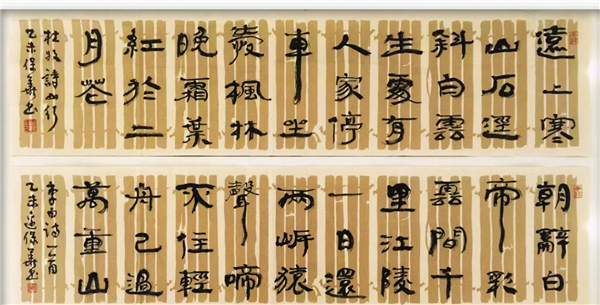 遠上寒
山石徑
斜白雲
生處有
人家停
車坐
愛楓林
晚霜葉
紅於二
月花
杜牧詩山行
乙未保義书
朝辭白
帝彩
雲間千
里江陵
一日還
兩岸猿
聲啼
不住輕
舟已過
萬重山
李白詩一首
乙未保義书